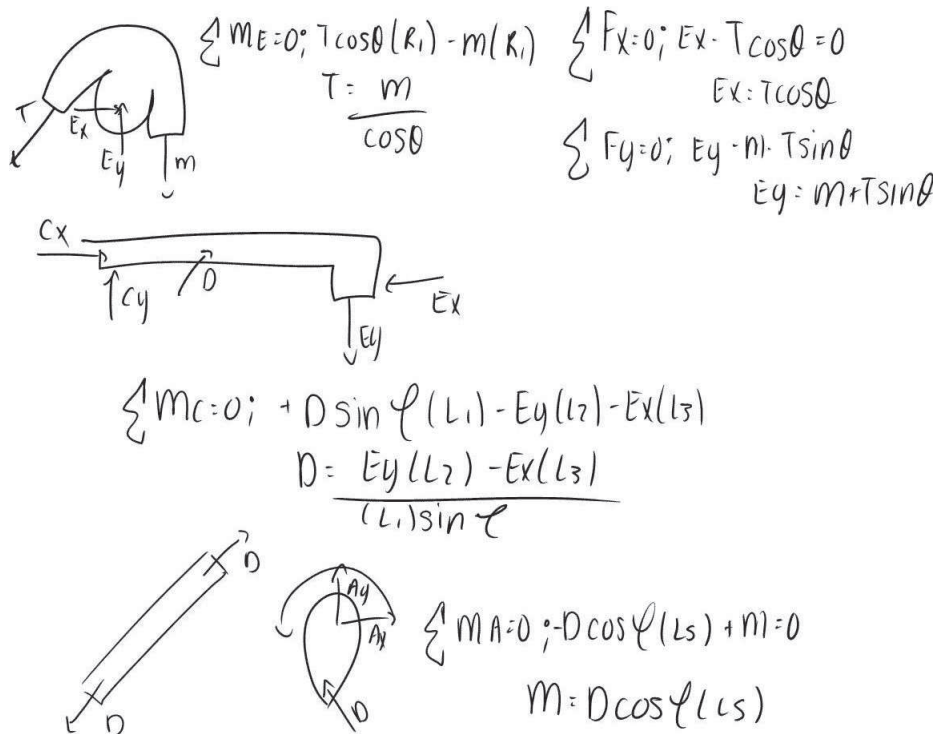 ΣME=0; Tcosθ(R₁) - m(R₁)
T = m
cosθ
ΣFx=0; Ex - Tcosθ = 0
Ex = Tcosθ
ΣFy=0; Ey - m - Tsinθ
Ey = m+Tsinθ
T
Ex
Ey
m
Cx
Cy
D
Ex
Ey
Σmc=0; + D sin φ (L₁) - Ey(L₂) - Ex(L₃)
D = Ey(L₂) - Ex(L₃)
(L₁)sin φ
D
D
Ay
Ax
D
ΣMA=0; -Dcosφ(L5) + m=0
M = Dcosφ(L5)